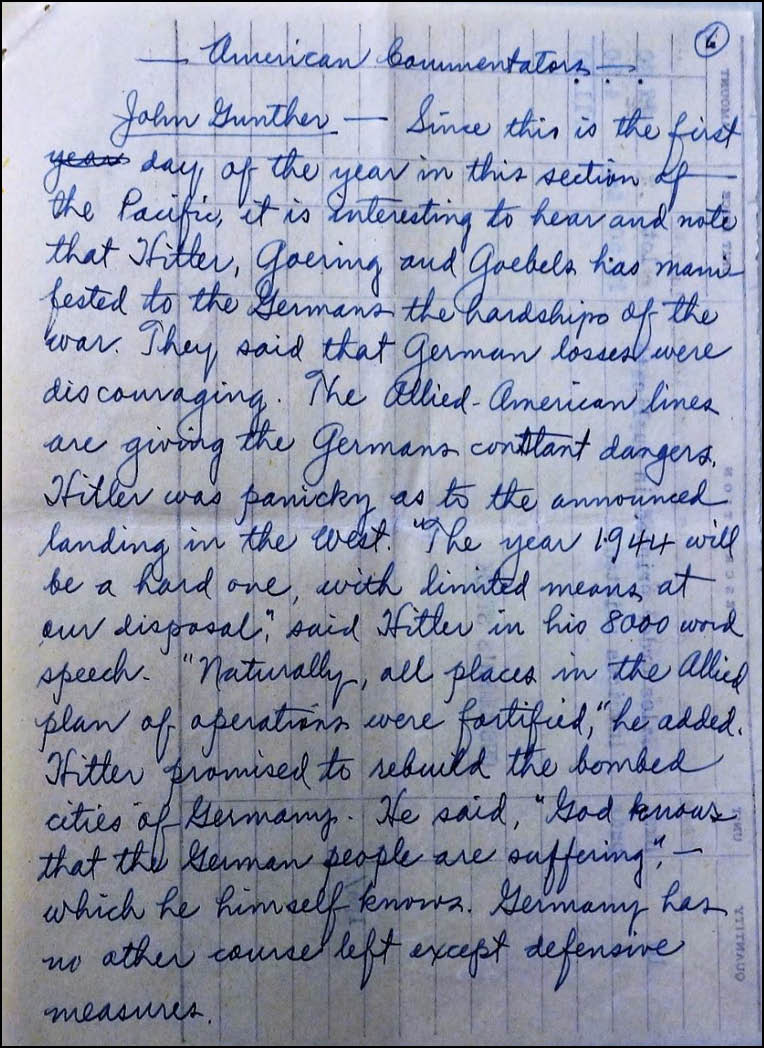 6
— American Commentators —
John Gunther — Since this is the first
year day of the year in this section of
the Pacific, it is interesting to hear and note
that Hitler, Goering and Goebels has mani-
fested to the Germans the hardships of the
war. They said that German losses were
discouraging. The Allied-American lines
are giving the Germans constant dangers.
Hitler was panicky as to the announced
landing in the West. "The year 1944 will
be a hard one, with limited means at
our disposal", said Hitler in his 8000 word
speech. "Naturally, all places in the Allied
plan of operations were fortified," he added.
Hitler promised to rebuild the bombed
cities of Germany. He said, "God knows
that the German people are suffering", —
which he himself knows. Germany has
no other course left except defensive
measures.
QUANTITY
UNIT